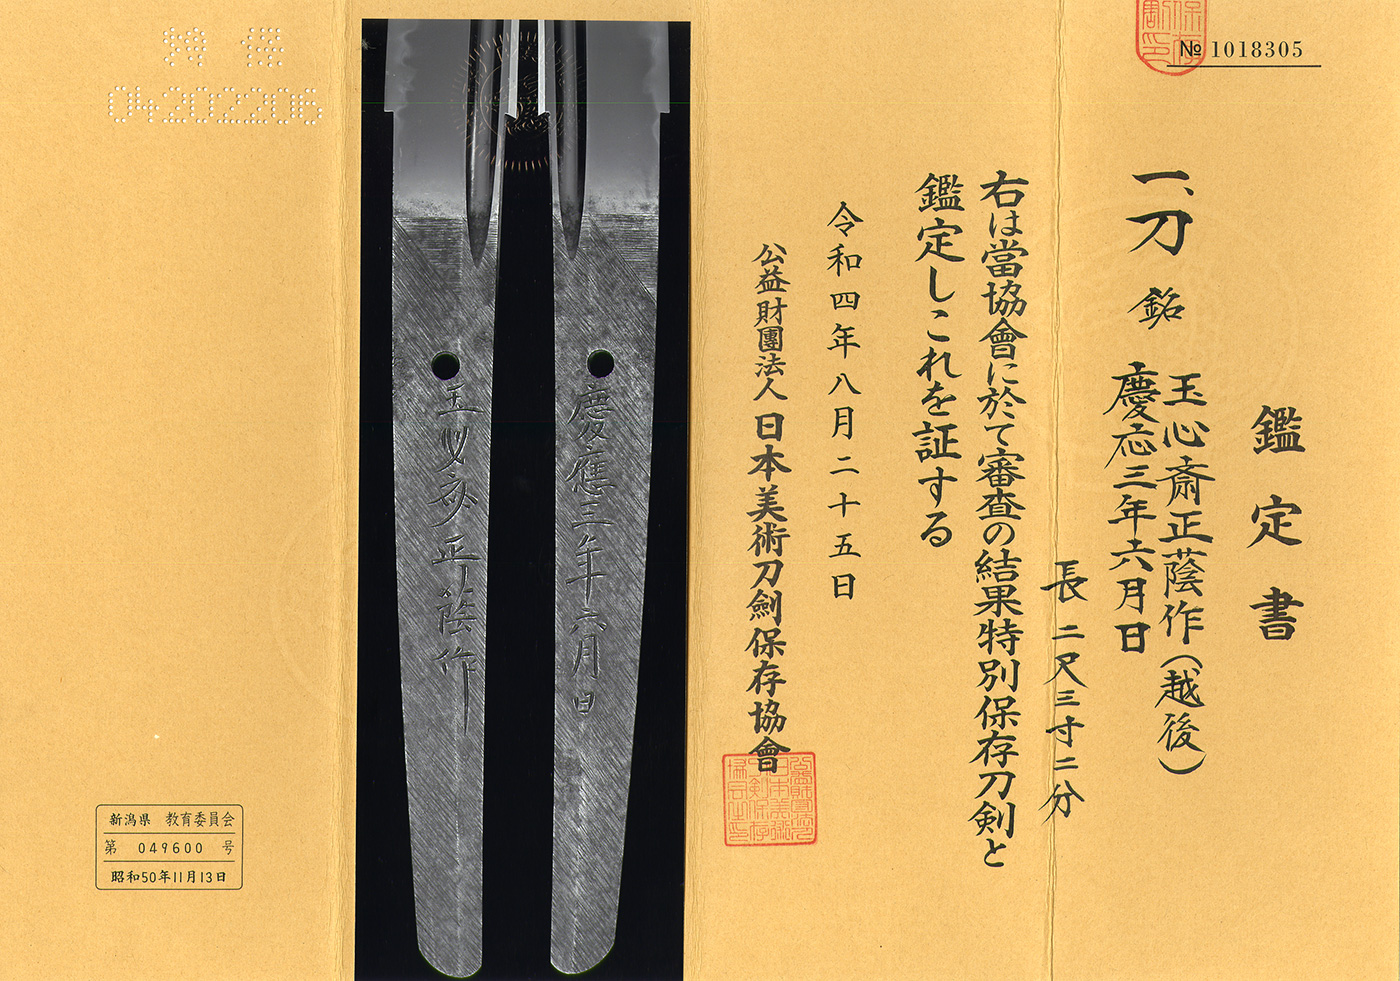 № 1018305
鑑定書
一、刀 銘 玉心斎正蔭作(越後)
慶応三年六月日
長 二尺三寸二分
右は當協會に於て審査の結果特別保存刀剣と
鑑定しこれを証する
令和四年八月二十五日
公益財團法人 日本美術刀劍保存協會
慶應三年六月日
玉心斎正蔭作
04202206
新潟県 教育委員会
第 049600 号
昭和50年11月13日